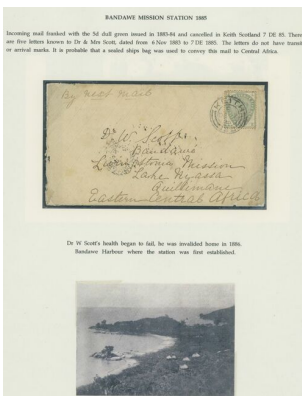 BANDAWE MISSION STATION 1885
Incoming mail franked with the 5d dull green issued in 1883-84 and cancelled in Keith Scotland 7 DE 85. There
are five letters known to Dr & Mrs Scott, dated from 6 Nov 1883 to 7 DE 1885. The letters do not have transit
or arrival marks. It is probable that a sealed ships bag was used to convey this mail to Central Africa.
By next Mail
KEITH
Dr W. Scott
Bandawe
Livingstonia Mission
Lake Nyassa
Quillimane
Eastern Central Africa
Dr W Scott's health began to fail, he was invalided home in 1886.
Bandawe Harbour where the station was first established.